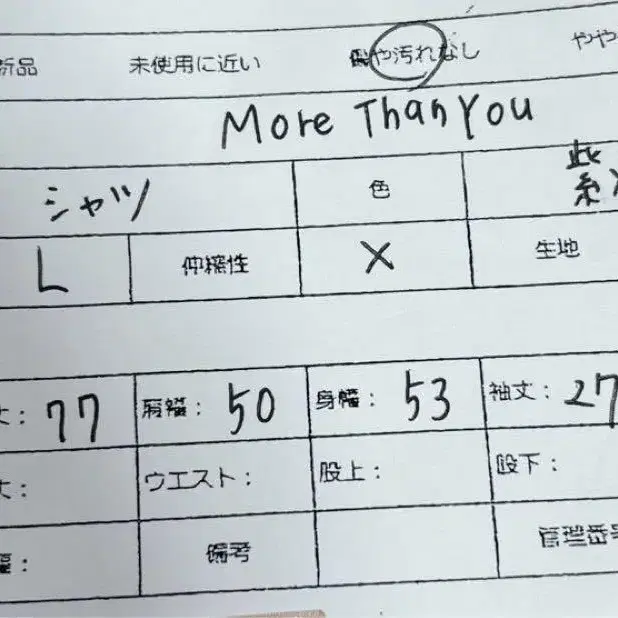 新品 未使用に近い 傷や汚れなし やや
More Than You
シャツ 色 紫
L 伸縮性 × 生地
丈: 77 肩幅: 50 身幅: 53 袖丈: 27
丈: ウエスト: 股上: 股下:
幅: 備考 管理番号